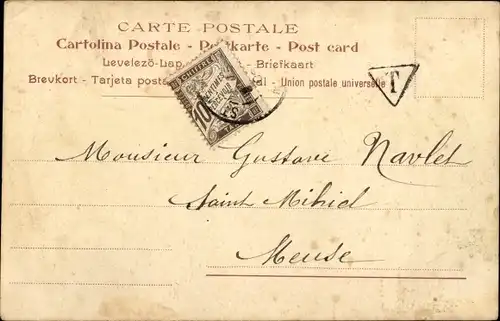 CARTE POSTALE
Cartolina Postale - Postkarte - Post card
Levelező-Lap - Briefkaart
Brevkort - Tarjeta postal - Union postale universelle
CHIFFRE
10
CENTIMES
À PERCEVOIR
T
Monsieur Gustave Navlet
Saint Mihiel
Meuse